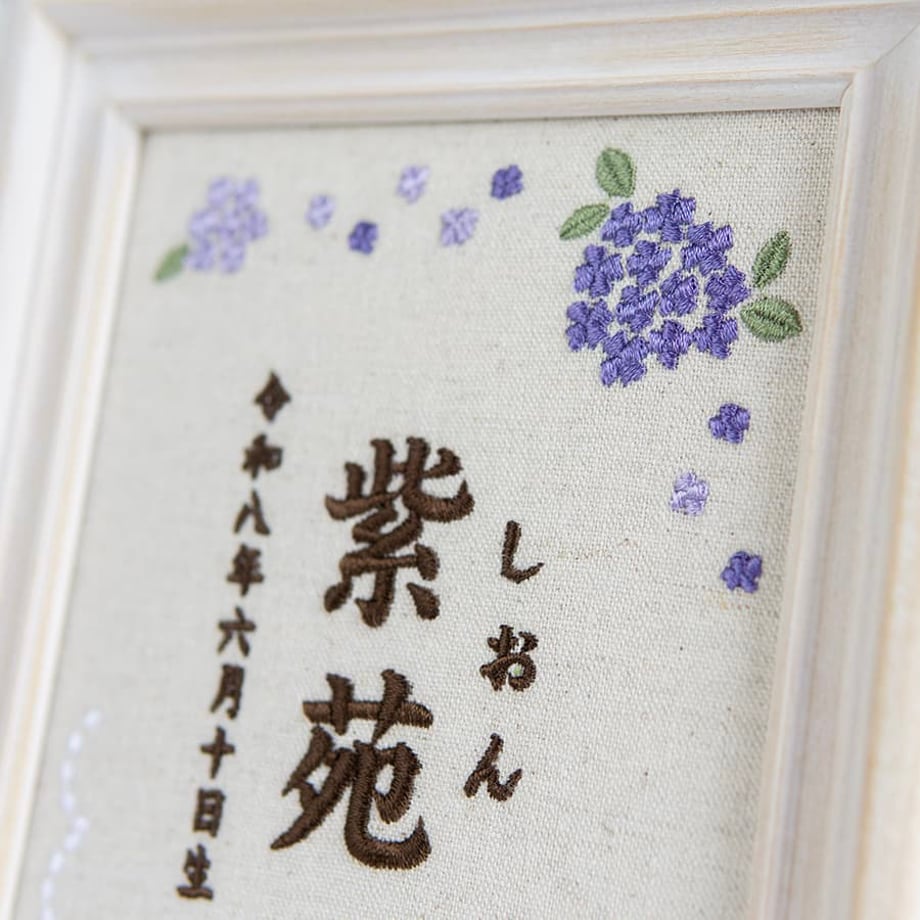 しおん
紫苑
令和八年六月十日生